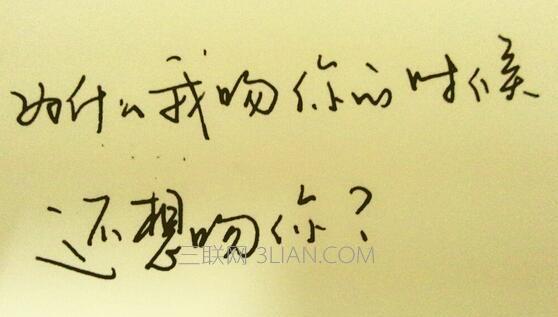 为什么我吻你的时候
还想吻你？
三联网 3LIAN.COM